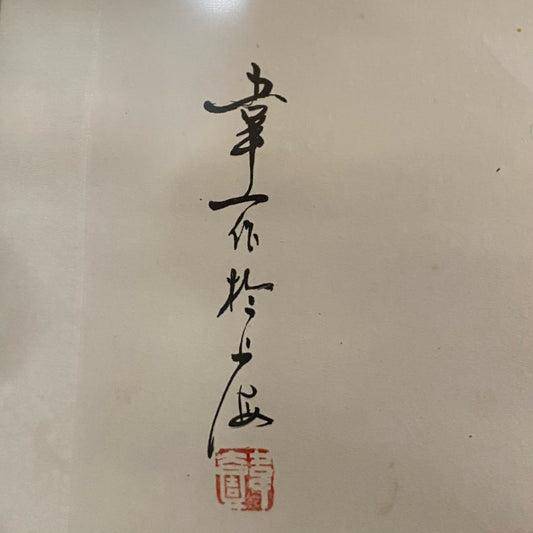 韋一作於上海